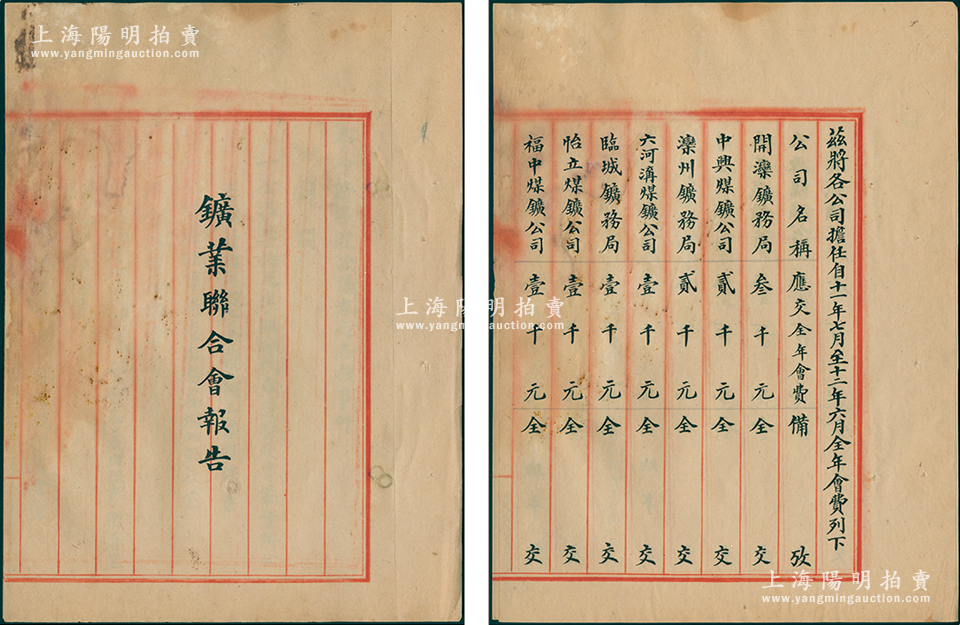 上海陽明拍賣
www.yangmingauction.com
鑛業聯合會報告
上海陽明拍賣
www.yangmingauction.com
茲將各公司擔任自十一年七月至十二年六月全年會費列下
公司名稱 應交全年會費 備攷
開灤鑛務局 叁千元 全交
中興煤鑛公司 貳千元 全交
灤州鑛務局 貳千元 全交
六河溝煤鑛公司 壹千元 全交
臨城鑛務局 壹千元 全交
怡立煤鑛公司 壹千元 全交
福中煤鑛公司 壹千元 全交
上海陽明拍賣
www.yangmingauction.com
上海陽明拍賣
www.yangmingauction.com